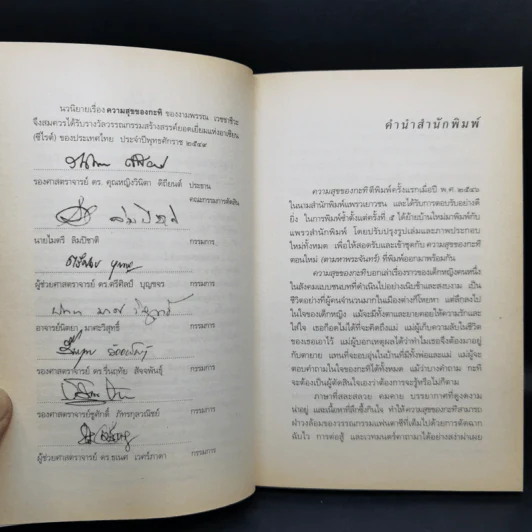 นวนิยายเรื่อง ความสุขของกะทิ ของงามพรรณ เวชชาชีวะ
จึงสมควรได้รับรางวัลวรรณกรรมสร้างสรรค์ยอดเยี่ยมแห่งอาเซียน
(ซีไรต์) ของประเทศไทย ประจำปีพุทธศักราช ๒๕๔๙
รองศาสตราจารย์ ดร. คุณหญิงวินิตา ดิถียนต์ ประธาน
คณะกรรมการตัดสิน
นายไมตรี ลิมปิชาติ กรรมการ
ผู้ช่วยศาสตราจารย์ ดร.ตรีศิลป์ บุญขจร กรรมการ
อาจารย์นิตยา มาศะวิสุทธิ์ กรรมการ
รองศาสตราจารย์ ดร.รื่นฤทัย สัจจพันธุ์ กรรมการ
รองศาสตราจารย์ชูศักดิ์ ภัทรกุลวณิชย์ กรรมการ
ผู้ช่วยศาสตราจารย์ ดร.ธเนศ เวศร์ภาดา กรรมการ
คำนำสำนักพิมพ์
ความสุขของกะทิ ตีพิมพ์ครั้งแรกเมื่อปี พ.ศ. ๒๕๔๖
ในนามสำนักพิมพ์แพรวเยาวชน และได้รับการตอบรับอย่างดี
ยิ่ง ในการพิมพ์ซ้ำตั้งแต่ครั้งที่ ๕ ได้ย้ายบ้านใหม่มาพิมพ์กับ
แพรวสำนักพิมพ์ โดยปรับปรุงรูปเล่มและภาพประกอบ
ใหม่ทั้งหมด เพื่อให้สอดรับและเข้าชุดกับ ความสุขของกะทิ
ตอนใหม่ (ตามหาพระจันทร์) ที่พิมพ์ออกมาพร้อมกัน
ความสุขของกะทิ บอกเล่าเรื่องราวของเด็กหญิงคนหนึ่ง
ในสังคมแบบชนบทที่ดำเนินไปอย่างเนิบช้าและสงบงาม เป็น
ชีวิตอย่างที่ผู้คนจำนวนมากในเมืองต่างก็โหยหา แต่ลึกลงไป
ในใจของเด็กหญิง แม้จะมีทั้งตาและยายคอยให้ความรักและ
ใส่ใจ เธอก็อดไม่ได้ที่จะคิดถึงแม่ แม่ผู้เก็บความลับในชีวิต
ของเธอเอาไว้ แม่ผู้บอกเหตุผลได้ว่าทำไมเธอจึงต้องมาอยู่
กับตายาย แทนที่จะอบอุ่นในบ้านที่มีทั้งพ่อและแม่ แม่ผู้จะ
ตอบคำถามในใจของกะทิได้ทั้งหมด แม้ว่าบางคำถาม กะทิ
จะต้องเป็นผู้ตัดสินใจเองว่าต้องการจะรู้หรือไม่ก็ตาม
ภาษาที่สละสลวย คมคาย บรรยากาศที่ดูงดงาม
น่าอยู่ และเนื้อหาที่ลึกซึ้งกินใจ ทำให้ความสุขของกะทิสามารถ
ฝ่าวงล้อมของวรรณกรรมแฟนตาซีที่เต็มไปด้วยการตัดฉาก
ฉับไว การต่อสู้ และเวทมนตร์คาถามาได้อย่างสง่าผ่าเผย